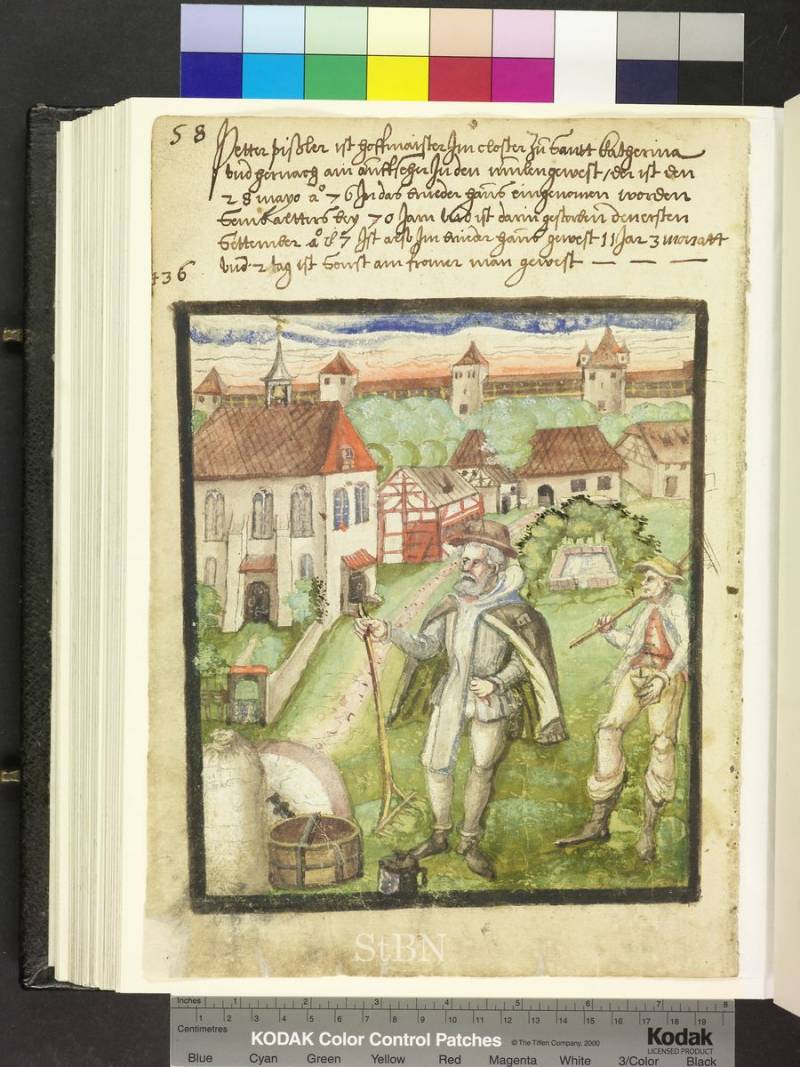 58
Petter pißler ist hoffmaister Im closter zu Santt Katherina
Vnd hernach ain auffseher In den mullen gewest / der ist den
28 mayo aº 76 In das brueder haus eingenomen worden
Seins altters bey 70 Jarn Vnd ist darin gestorben den ersten
Settember aº 87 Ist also Im brueder haus gewest 11 Jar 3 monatt
436
Vnd 2 tag ist Sonst ain fromer man gewest — — —
StBN
Inches 1 2 3 4 5 6 7 8
Centimetres 1 2 3 4 5 6 7 8 9 10 11 12 13 14 15 16 17 18 19
KODAK Color Control Patches © The Tiffen Company, 2000 Kodak
LICENSED PRODUCT
Blue Cyan Green Yellow Red Magenta White 3/Color Black